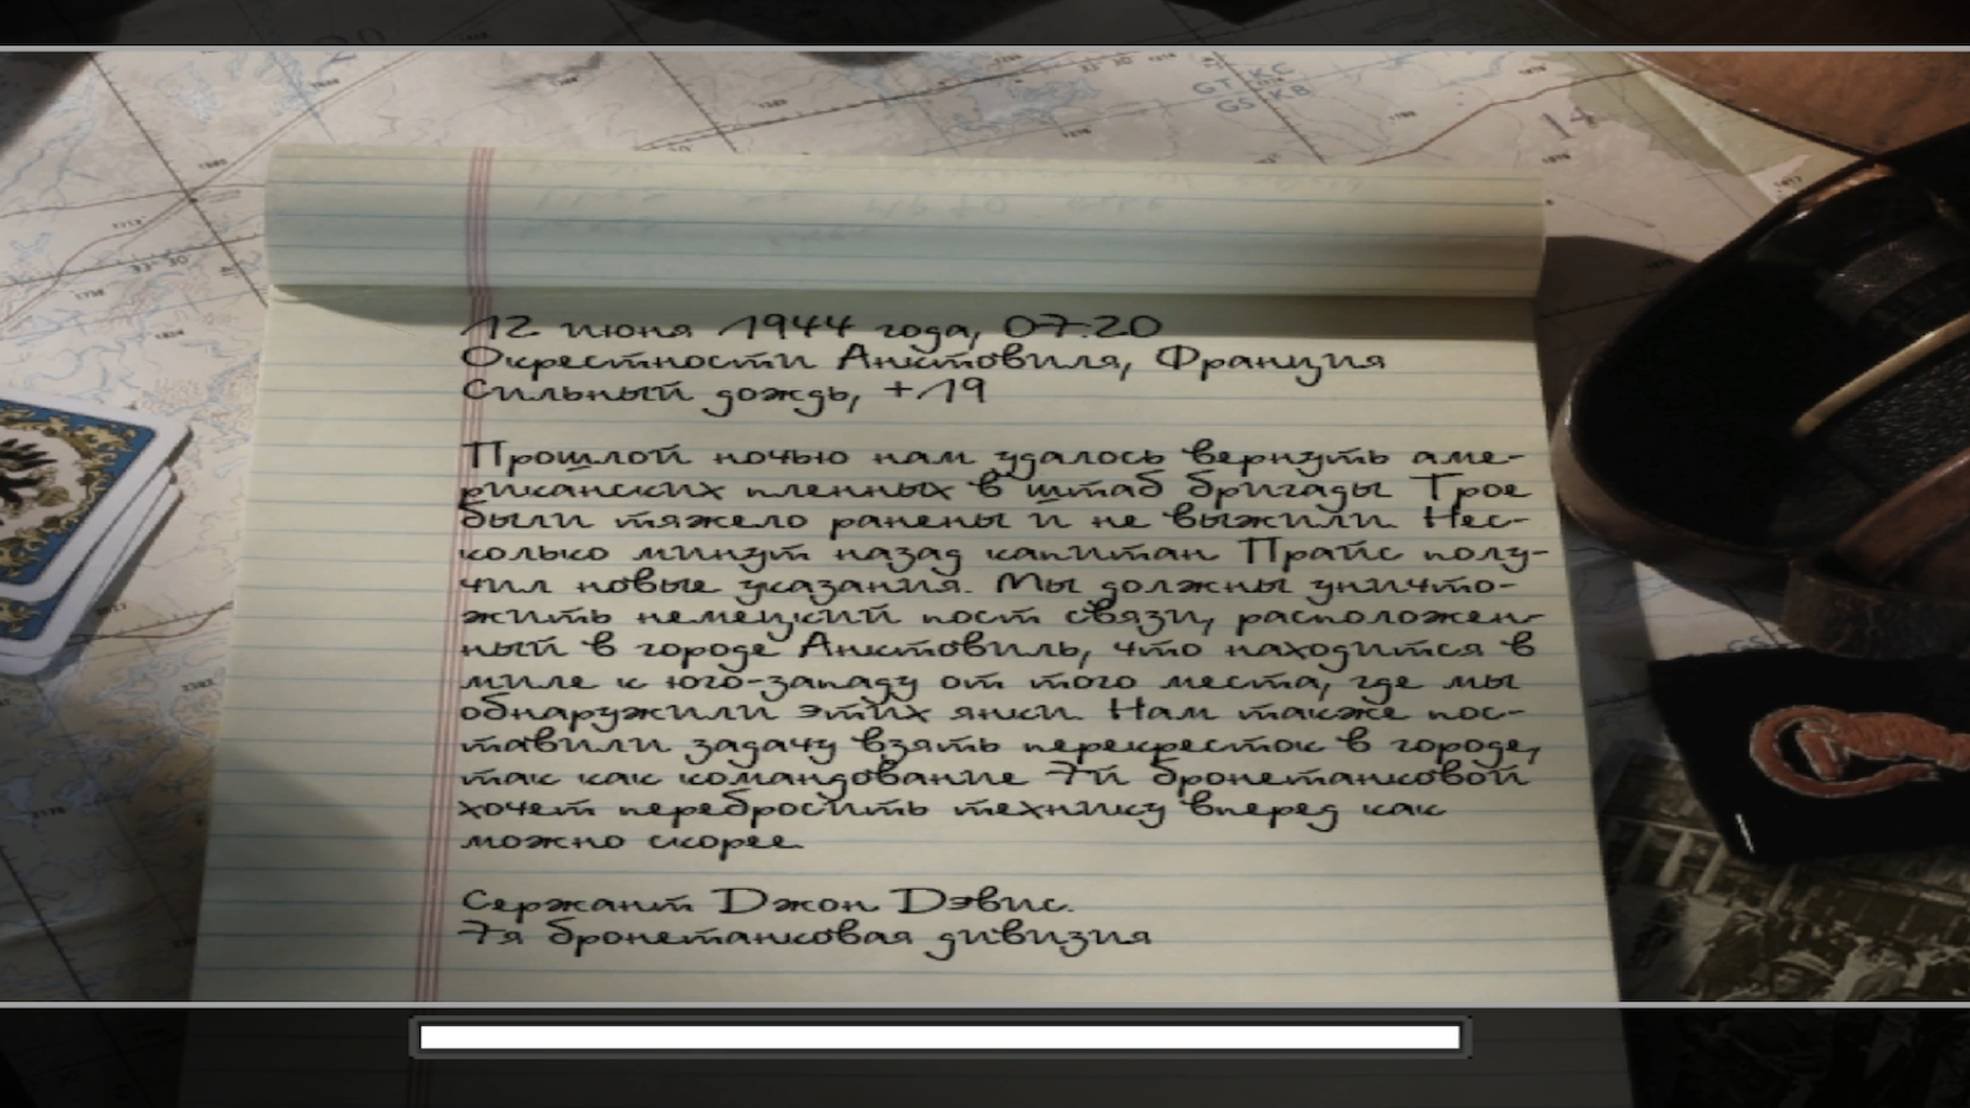 GT KC
GS KB
14
12 июня 1944 года, 07:20
Окрестности Анктовиля, Франция
Сильный дождь, +19
Прошлой ночью нам удалось вернуть аме-
риканских пленных в штаб бригады Трое
были тяжело ранены и не выжили. Нес-
колько минут назад капитан Прайс полу-
чил новые указания. Мы должны уничто-
жить немецкий пост связи, расположен-
ный в городе Анктовиль, что находится в
миле к юго-западу от того места, где мы
обнаружили этих янки. Нам также пос-
тавили задачу взять перекресток в городе,
так как командование 7й бронетанковой
хочет перебросить технику вперед как
можно скорее.
Сержант Джон Дэвис.
7я бронетанковая дивизия